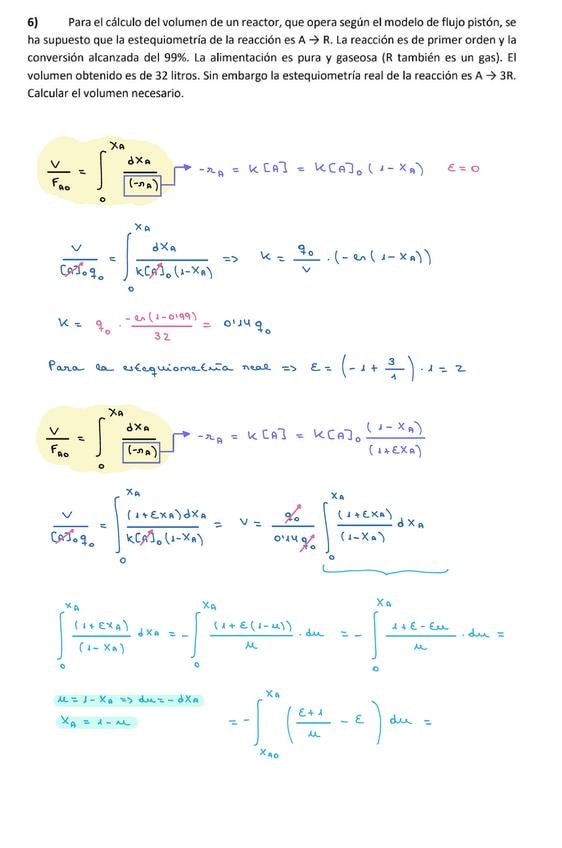 6) Para el cálculo del volumen de un reactor, que opera según el modelo de flujo pistón, se
ha supuesto que la estequiometría de la reacción es A → R. La reacción es de primer orden y la
conversión alcanzada del 99%. La alimentación es pura y gaseosa (R también es un gas). El
volumen obtenido es de 32 litros. Sin embargo la estequiometría real de la reacción es A → 3R.
Calcular el volumen necesario.
V/F_A0 = ∫_0^{XA} dXA/(-rA) → -rA = K[A] = K[A]₀(1-XA) ε=0
V/([A]₀q₀) = ∫_0^{XA} dXA/(K[A]₀(1-XA)) => K = q₀/V · (-ln(1-XA))
K = q₀ · -ln(1-0'99)/32 = 0'14 q₀
Para la estequiometría real => ε = (-1 + 3/1) · 1 = 2
V/F_A0 = ∫_0^{XA} dXA/(-rA) → -rA = K[A] = K[A]₀ (1-XA)/(1+εXA)
V/([A]₀q₀) = ∫_0^{XA} (1+εXA)dXA/(K[A]₀(1-XA)) = V = q₀/(0'14q₀) ∫_0^{XA} (1+εXA)/(1-XA) dXA
∫_0^{XA} (1+εXA)/(1-XA) dXA = -∫_0^{XA} (1+ε(1-u))/u · du = -∫_0^{XA} (1+ε-εu)/u · du =
u = 1-XA => du = -dXA
XA = 1-u
= -∫_{XA0}^{XA} ((ε+1)/u - ε) du =